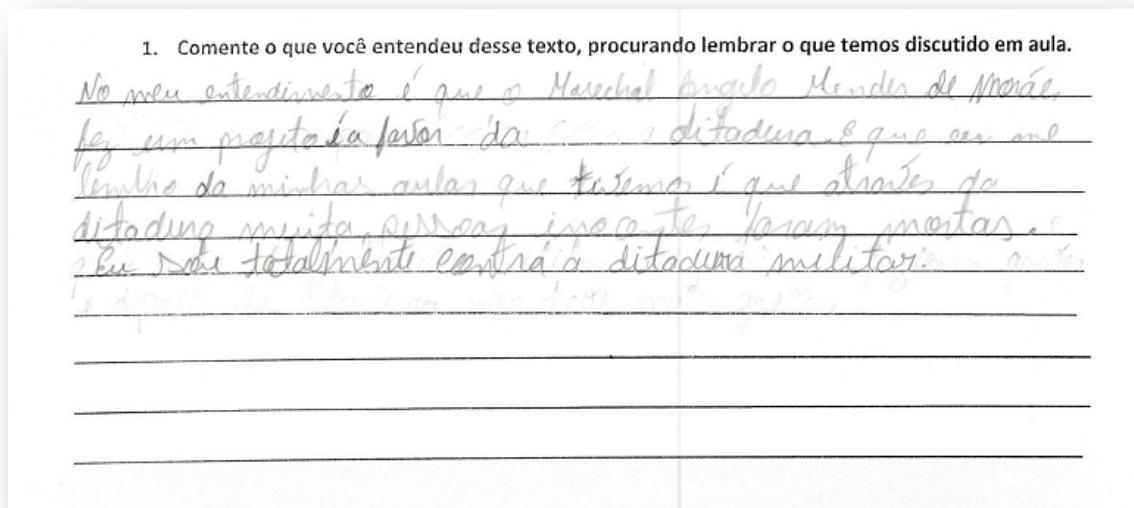 1. Comente o que você entendeu desse texto, procurando lembrar o que temos discutido em aula.
No meu entendimento é que o Marechal Angelo Mendes de Morãe,
fez um projeto ia favor da ditadura. E que eu me
lembro da minhas aulas que tivemos é que através da
ditadura muita pessoas inocentes foram mortas.
Eu sou totalmente contra a ditadura militar.